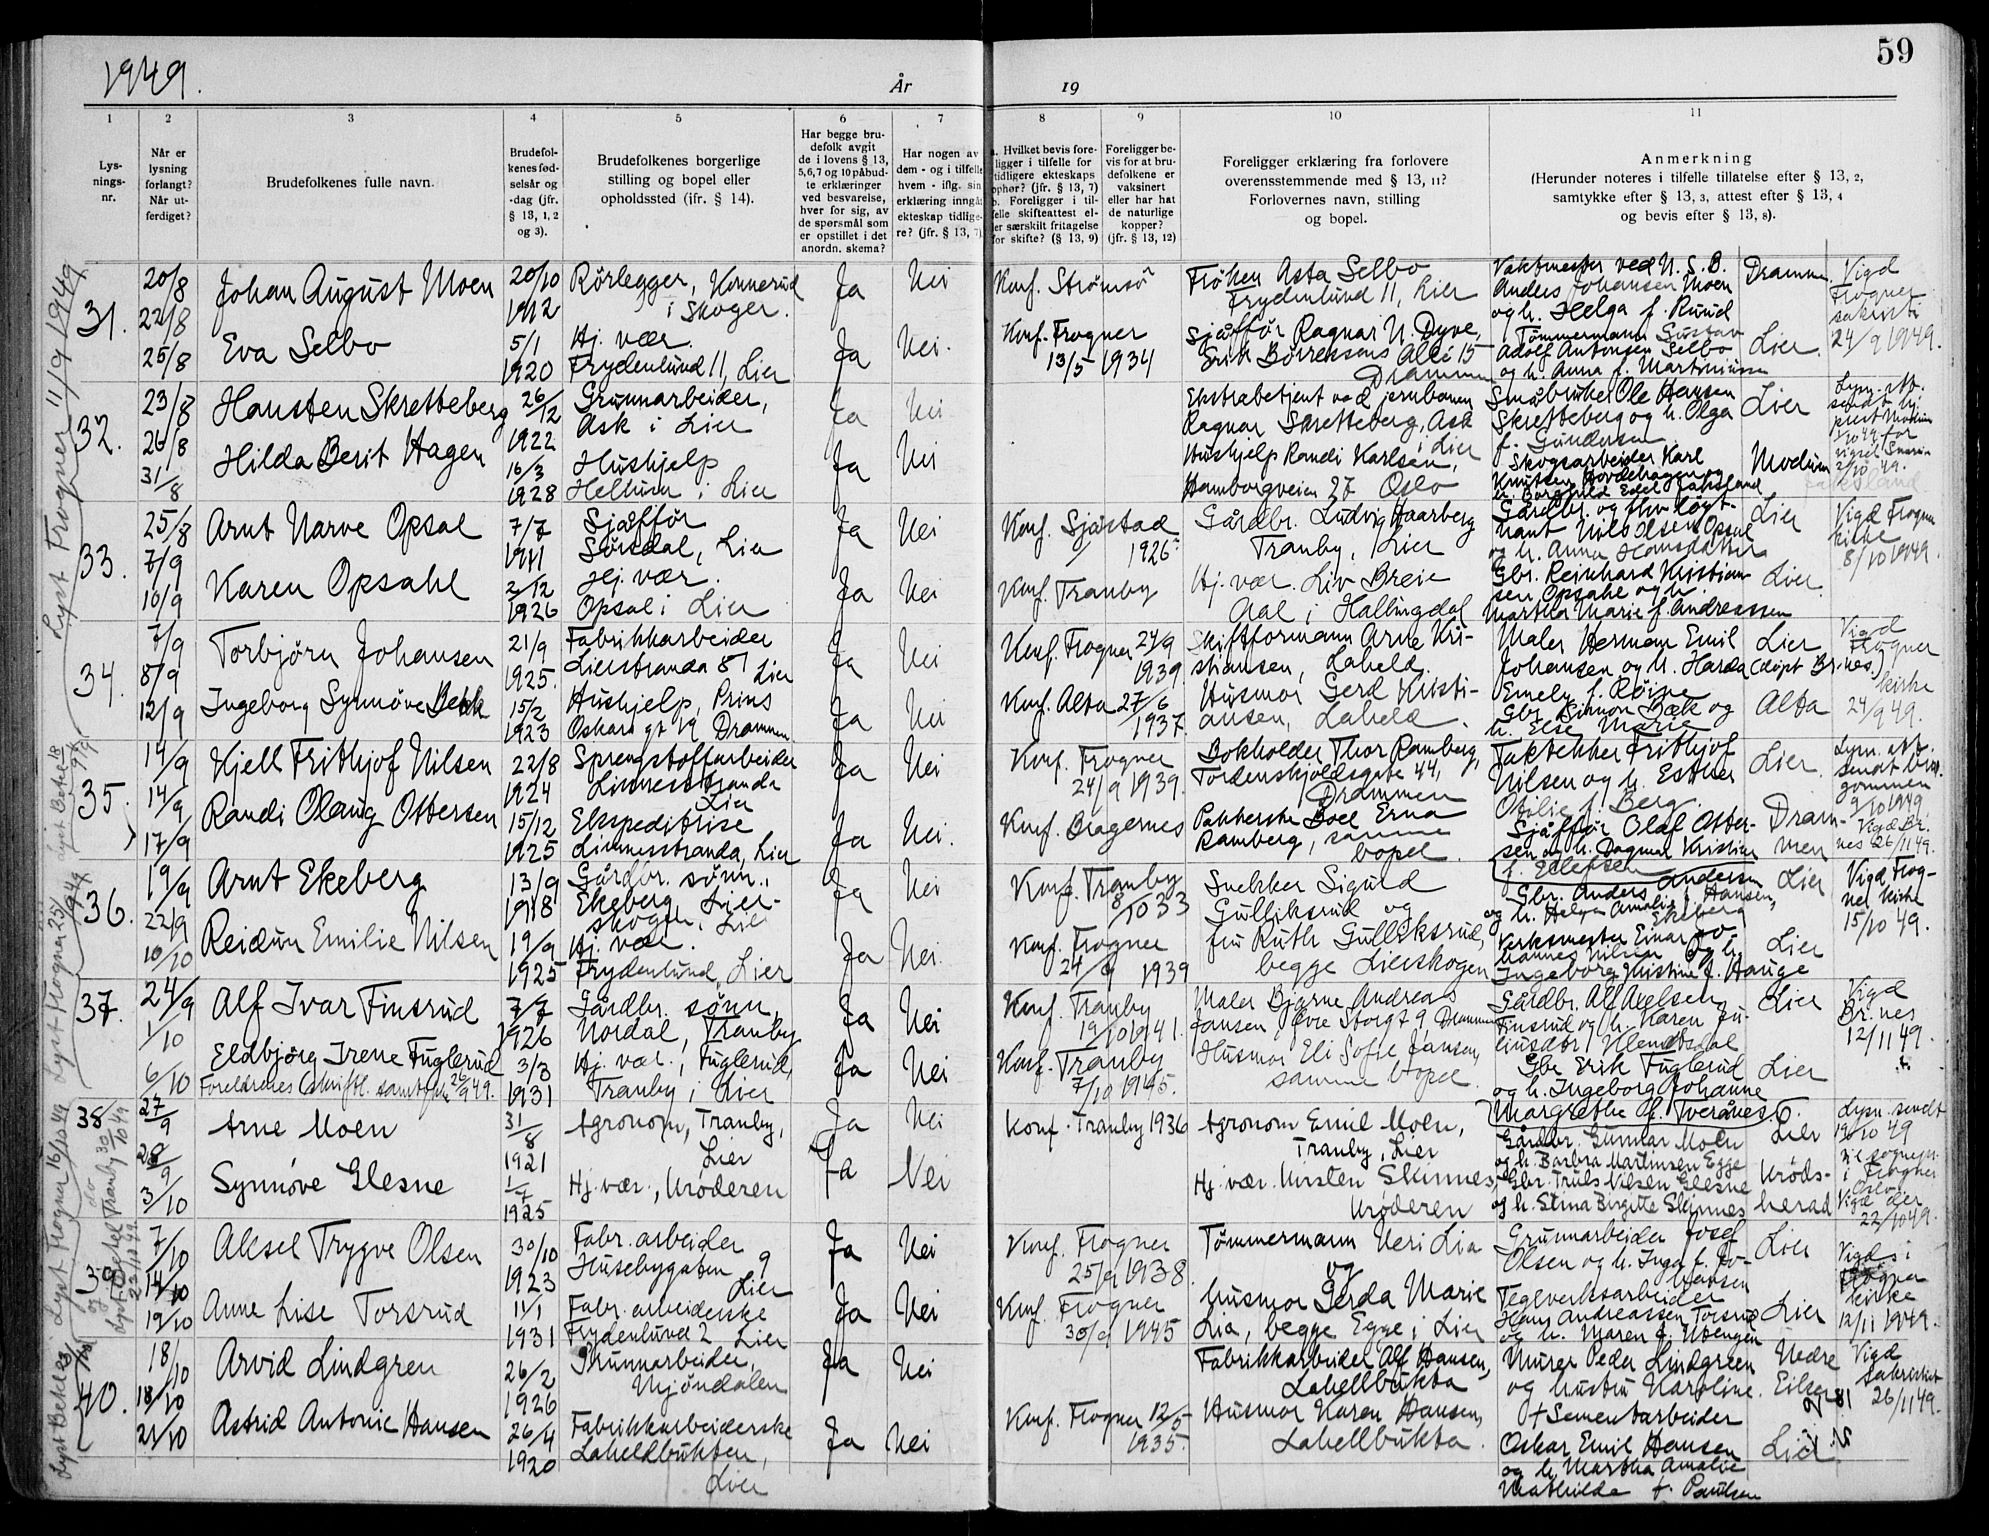 1949.
År
19
59
1
2
3
4
5
6
7
8
9
10
11
Lys-
nings-
nr.
Når er
lysning
forlangt?
Når ut-
ferdiget?
Brudefolkenes fulle navn.
Brudefol-
kenes fød-
selsår og
-dag (jfr.
§ 13, 1, 2
og 3).
Brudefolkenes borgerlige
stilling og bopel eller
opholdssted (ifr. § 14).
Har begge bru-
defolk avgit
de i lovens § 13,
5, 6, 7 og 10 påbud-
te erklæringer
ved besvarelse,
hver for sig, av
de spørsmål som
er opstillet i det
anordn. skema?
Har nogen av
dem - og i tilfelle
hvem - iflg. sin
erklæring inngåt
ekteskap tidlige-
re? (jfr. § 13, 7)
a. Hvilket bevis fore-
ligger i tilfelle for
tidligere ekteskaps
ophør? (jfr. § 13, 7)
b. Foreligger i til-
felle skifteattest el-
ler særskilt fritagelse
for skifte? (§ 13, 9)
Foreligger be-
vis for at bru-
defolkene er
vaksinert
eller har hat
de naturlige
kopper?
(jfr. § 13, 12)
Foreligger erklæring fra forlovere
overensstemmende med § 13, 11?
Forlovernes navn, stilling
og bopel.
Anmerkning
(Herunder noteres i tilfelle tillatelse efter § 13, 2,
samtykke efter § 13, 3, attest efter § 13, 4
og bevis efter § 13, 8).
31.
20/8
22/8
25/8
Johan August Moen
20/10
1912
Rørlegger, Konnerud
i Skoger.
Ja
Nei
Konf. Strømsø
Frøken Asta Selbo
Frydenlund 11, Lier
Vaktmester ved N. S. B.
Anders Johansen Moen
og h. Helga f. Ruud
Drammen.
Vigd
Frogner
sakristi
24/9 1949.
Eva Selbo
5/1
1920
Hj. vær.
Frydenlund 11, Lier
Ja
Nei.
Konf. Frogner
13/5 1934
Sjåffør Ragnar N. Dyve,
Erik Børresens Allé 15
Drammen
Tømmermann Gustav
Adolf Antonsen Selbo
og h. Anna f. Martiniussen
Lier.
32.
23/8
26/8
31/8
Hansten Skretteberg
26/12
1922
Grunnarbeider,
Ask i Lier
Ja
Nei
Ekstrabetjent ved jernbanen
Ragnar Skretteberg, Ask
i Lier
Småbruker Ole Hansen
Skretteberg og h. Olga
f. Gundersen
Lier
Lysn. att.
sendt
prest Modum
1/10 49 for
vigsel Snarum
2/10 49.
Hilda Berit Hagen
16/3
1928
Hushjelp
Hellum i Lier
Ja
Nei
Hushjelp Randi Karlsen,
Hamborgveien 27 Oslo
Skogsarbeider Karl
Knutsen Hovdehagen og
h. Borghild Edel f. Jaksland
Modum
33.
25/8
7/9
10/9
Arnt Narve Opsal
7/7
1911
Sjåffør
Sørsdal, Lier
Ja
Nei
Konf. Sjåstad
1926.
Gårdbr. Ludvig Haarberg
Tranby, Lier
Gårdbr. og fhv. løyt-
nant Nils Olsen Opsal
og h. Anna Hansdatter
Lier
Vigd Frogner
kirke
8/10 1949.
Karen Opsahl
2/12
1926
Hj. vær.
Opsal i Lier
Ja
Nei
Konf. Tranby
Hj. vær. Liv Breie
Aal i Hallingdal
Gbr. Reinhard Kristian-
sen Opsahl og h.
Martha Marie f. Andreassen
Lier.
34.
7/9
8/9
12/9
Torbjørn Johansen
21/9
1925.
Fabrikkarbeider
Lierstranda 81 Lier
Ja
Nei
Konf. Frogner 24/9
1939
Skiftformann Arne Kri-
stiansen, Lahell.
Maler Herman Emil
Johansen og h. Harda (døpt Br.nes.)
Emely f. Røine
Lier
Vigd
Frogner
kirke
24/9 49.
Ingeborg Synnøve Bekk
15/2
1923
Hushjelp, Prins
Oskars gt 19 Drammen.
Ja
Nei
Konf. Alta 27/6
1937.
Husmor Gerd Kristi-
ansen, Lahell.
Gbr. Simon Bæk og
h. Else Marie
Alta
35.
14/9
14/9
17/9
Kjell Frithjof Nilsen
22/8
1924
Sprengstoffarbeider
Linnesstranda
Lier
Ja
Nei
Konf. Frogner
24/9 1939.
Bokholder Thor Ramberg,
Tordenskjoldsgate 44,
Drammen
Taktekker Frithjof
Nilsen og h. Esther
Otilie f. Berg.
Lier.
Lysn. att.
sendt brud-
gommen
9/10 1949
Vigd Br.
nes 26/11 49.
Randi Olaug Ottersen
15/12
1925
Ekspeditrise
Linnesstranda, Lier
Ja
Nei.
Konf. Bragernes
Pakkerske Boel Erna
Ramberg, samme
bopel.
Sjåffør Olaf Otter-
sen og h. Dagmar Kristine
f. Ellefsen
Dram-
men
36.
19/9
22/9
10/10
Arnt Ekeberg
13/9
1918
Gårdbr. sønn,
Ekeberg, Lier-
skogen, Lier
Ja
Nei
Konf. Tranby
8/10 33
Snekker Sigurd
Gulliksrud og
Gbr. Anders Andersen
og h. Helga Amalie f. Hansen,
Ekeberg
Lier
Vigd Frog-
ner kirke
15/10 49.
Reidun Emilie Nilsen
19/9
1925
Hj. vær.
Frydenlund, Lier
Ja
Nei.
Konf. Frogner
24/9 1939
fru Ruth Gulliksrud,
begge Lierskogen
Verksmester Einar Jo-
hannes Nilsen og h.
Ingeborg Kristine f. Hauge
Lier
37.
24/9
1/10
6/10
Alf Ivar Finsrud
7/7
1926
Gårdbr. sønn,
Nordal, Tranby
Ja
Nei
Konf. Tranby
19/10 1941.
Maler Bjarne Andreas
Jansen Øvre Storgt 9 Drammen
Gårdbr. Alf Axelsen
Finsrud og h. Karen
Lier
Vigd
Br.nes
12/11 49.
Eldbjørg Irene Fuglerud
Foreldrenes skriftl. samtykke 26/9 49.
3/3
1931
Hj. vær., Fuglerud,
Tranby i Lier
Ja
Nei
Konf. Tranby
7/10 1945.
Husmor Eli Sofie Jansen,
samme bopel.
Gbr Erik Fuglerud
og h. Ingeborg Johanne
Margrethe f. Tverånes
Lier
38.
27/9
28/9
3/10
Arne Moen
31/8
1921
Agronom, Tranby,
Lier
Ja
Nei
Konf. Tranby 1936
Agronom Emil Moen,
Tranby, Lier
Gårdbr. Gunnar Moen
og h. Barbra Martinsen Egge
Lier
Lysn. sendt
19/10 49
til sognepr.
i Frogner
Oslo
Vigd der
22/10 49.
Synnøve Glesne
1/7
1925
Hj. vær., Krøderen
Ja
Nei
Hj. vær. Kirsten Skinnes,
Krøderen
Gbr. Truls Nilsen Glesne
og h. Stina Birgitte Skinnes
Krøds-
herad
39
7/10
14/10
19/10
Aksel Trygve Olsen
30/10
1923
Fabr. arbeider
Husebygaten 9
Lier
Ja
Nei
Konf. Frogner
25/9 1938.
Tømmermann Neri Lia
og
Grunnarbeider Josef
Olsen og h. Inga f. Jo-
hansen
Lier
Vigd i
Frogner
kirke
12/11 1949.
Anne Lise Torsrud
11/1
1931
Fabr. arbeiderske
Frydenlund 2 Lier
Ja
Nei
Konf. Frogner
30/9 1945
husmor Gerda Marie
Lia, begge Egge i Lier
Teglverksarbeider
Hans Andreassen Torsrud
og h. Maren f. Utengen
Lier
40.
18/10
18/10
21/10
Arvid Lindgren
26/2
1926
Grunnarbeider,
Mjøndalen
Ja
Nei
Fabrikkarbeider Alf Hansen,
Lahellbukta
Murer Peder Lindgreen
og hustru Karoline.
Nedre
Eiker
Vigd
sakristiet
26/11 49.
Astrid Antonie Hansen
26/4
1920
Fabrikkarbeiderske
Lahellbukten,
Lier
Ja
Nei
Konf. Frogner 12/5
1935.
Husmor Karen Hansen,
Lahellbukta.
+ Sementarbeider
Oskar Emil Hansen
og h. Martha Amalie
Mathilda f. Paulsen
Lier
Lyst Frogner 11/9 1949
Lyst Frogner 25/9 49
Lyst Frogner 16/10 49
do Tranby 30/10 49